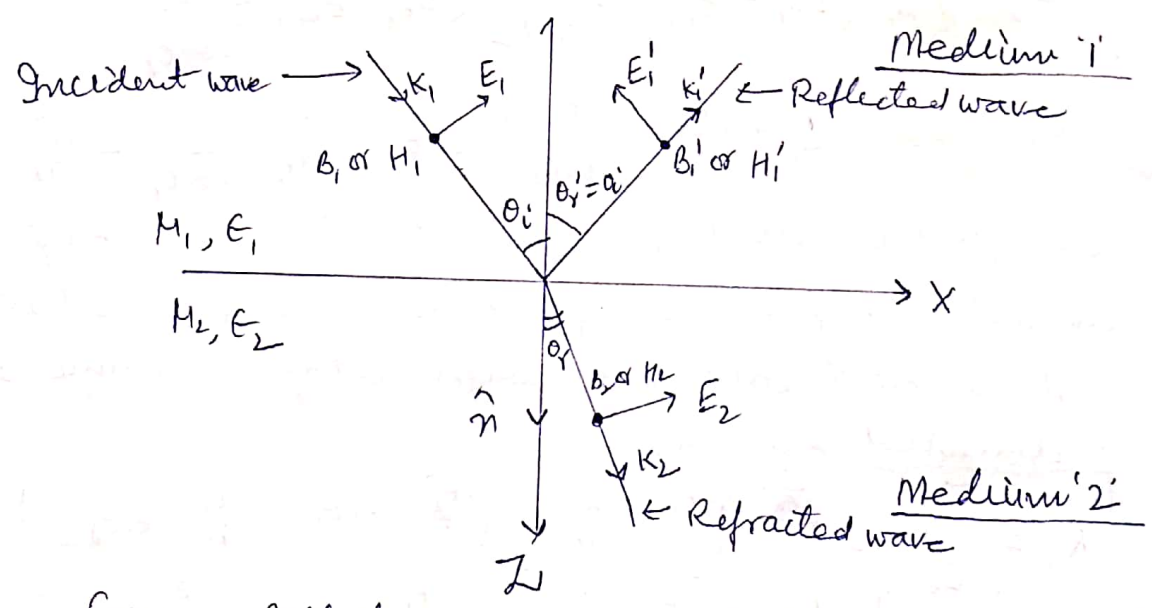 Medium '1'
Incident wave
K₁
E₁
E₁'
K₁'
Reflected wave
B₁ or H₁
B₁' or H₁'
θᵢ
θᵣ'=θᵢ
μ₁, ε₁
X
μ₂, ε₂
θᵣ
B₂ or H₂
E₂
n̂
K₂
Medium '2'
Refracted wave
Z